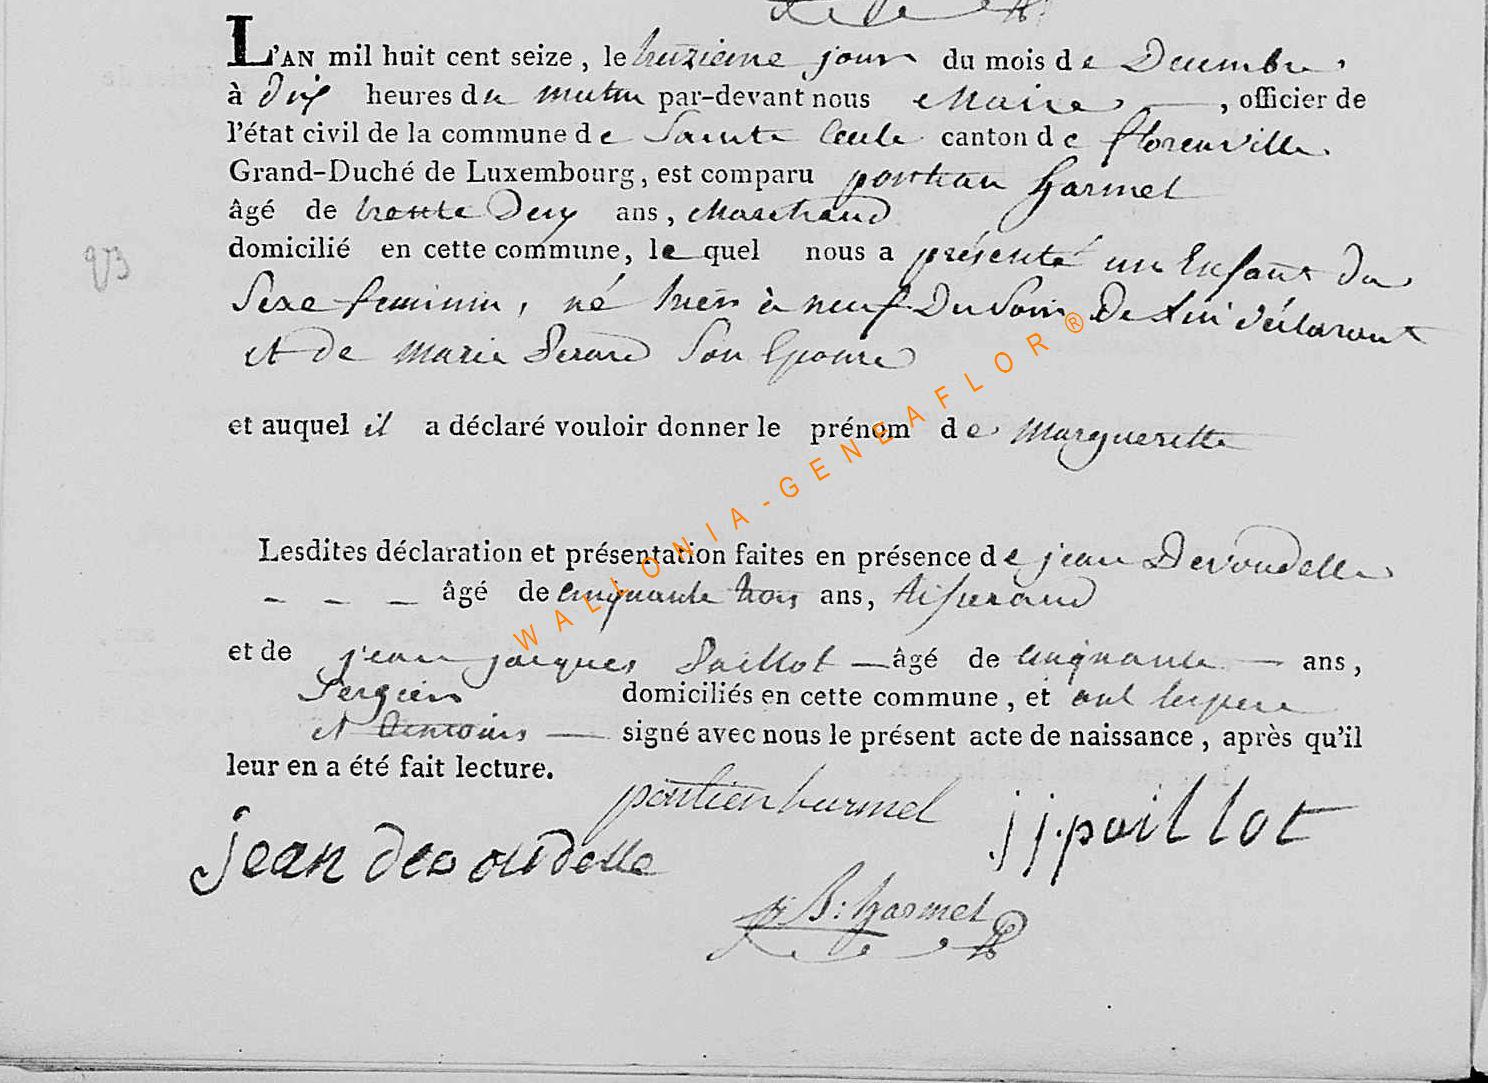 L'AN mil huit cent seize, le jour du mois de Decembre
à dix heures du matin par-devant nous Maire, officier de
l'état civil de la commune de Sainte Cecile canton de florenville
Grand-Duché de Luxembourg, est comparu pontian harmel
âgé de trente Deux ans, Marchand
domicilié en cette commune, le quel nous a présenté un Enfant du
Sexe feminin, né hier à neuf Du Soir De Lui déclarant
et de Marie Son Epouse
et auquel il a déclaré vouloir donner le prénom de Marguerette
Lesdites déclaration et présentation faites en présence de jean Devoudelle
– – – âgé de cinquante trois ans, Tisserand
et de jean jacques Paillot — âgé de cinquante — ans,
domiciliés en cette commune, et ont le pere
et temoins — signé avec nous le présent acte de naissance, après qu'il
leur en a été fait lecture.
pontien harmel
jj.paillot
jean devoudelle
B: harmel
93
WALLONIA-GENEAFLOR®